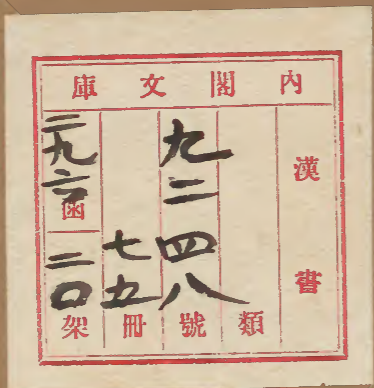 內閣文庫
漢書
類
九二四八號
七五冊
二九六函
二〇架